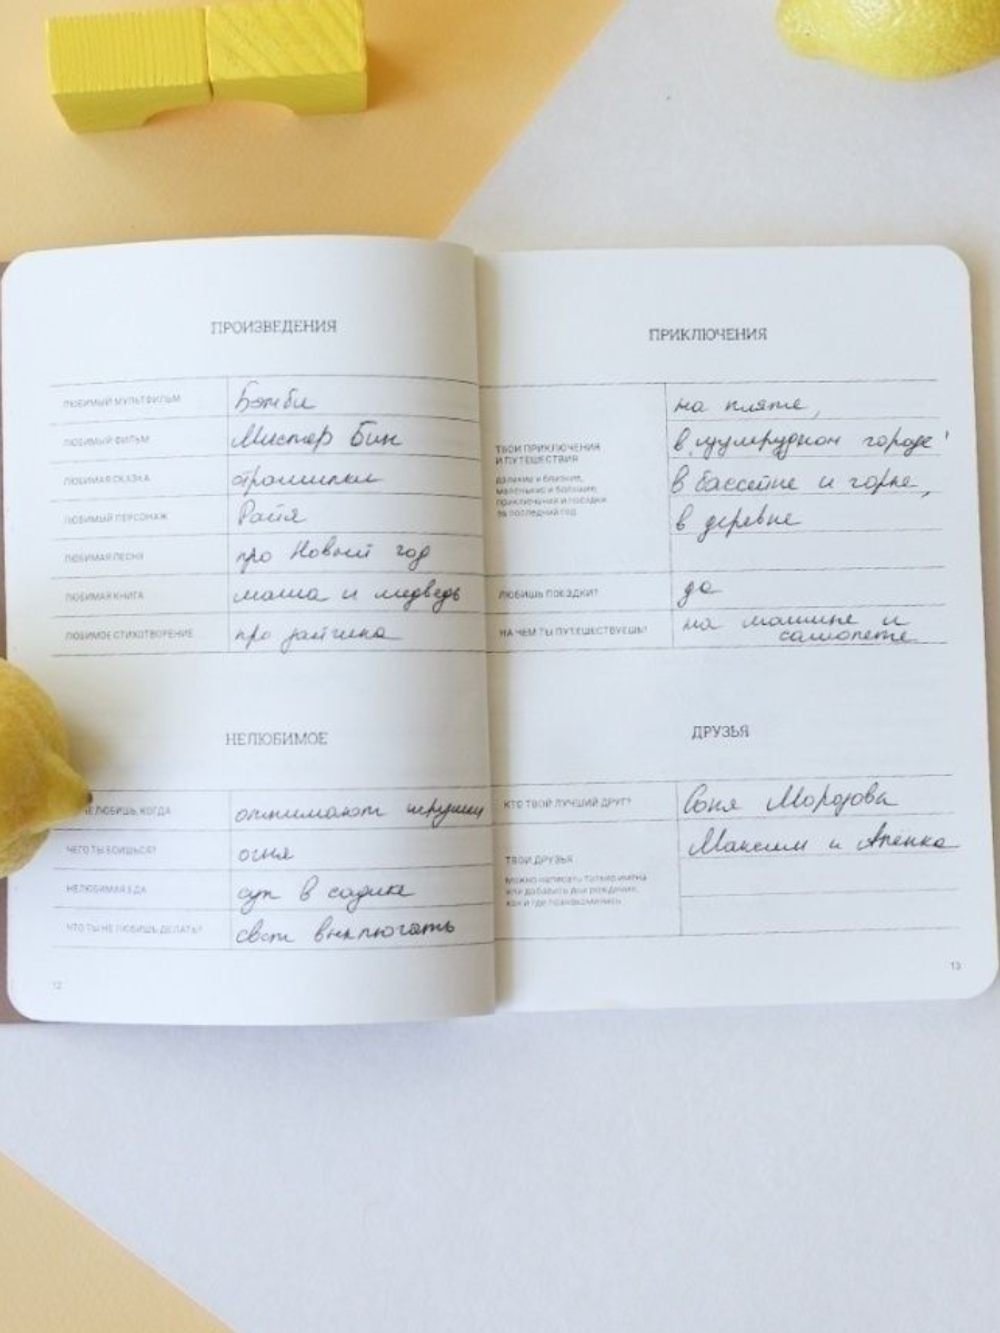 ПРОИЗВЕДЕНИЯ
ЛЮБИМЫЙ МУЛЬТФИЛЬМ Бэмби
ЛЮБИМЫЙ ФИЛЬМ Мистер Бин
ЛЮБИМАЯ СКАЗКА
ЛЮБИМЫЙ ПЕРСОНАЖ Райя
ЛЮБИМАЯ ПЕСНЯ про Новый год
ЛЮБИМАЯ КНИГА маша и медведь
ЛЮБИМОЕ СТИХОТВОРЕНИЕ про зайчика
НЕЛЮБИМОЕ
НЕ ЛЮБИШЬ, КОГДА отнимают игрушки
ЧЕГО ТЫ БОИШЬСЯ? огня
НЕЛЮБИМАЯ ЕДА суп в садике
ЧТО ТЫ НЕ ЛЮБИШЬ ДЕЛАТЬ? свет выключать
12
ПРИКЛЮЧЕНИЯ
на пляже,
ТВОИ ПРИКЛЮЧЕНИЯ в "изумрудном городе"
И ПУТЕШЕСТВИЯ
далекие и близкие, в бассейне и горке,
маленькие и большие
приключения и поездки
за последний год в деревне
ЛЮБИШЬ ПОЕЗДКИ? да
НА ЧЕМ ТЫ ПУТЕШЕСТВУЕШЬ? на машине и
самолете
ДРУЗЬЯ
КТО ТВОЙ ЛУЧШИЙ ДРУГ? Соня Морозова
Максим и Аленка
ТВОИ ДРУЗЬЯ
можно написать только имена
или добавить дни рождения,
как и где познакомились
13